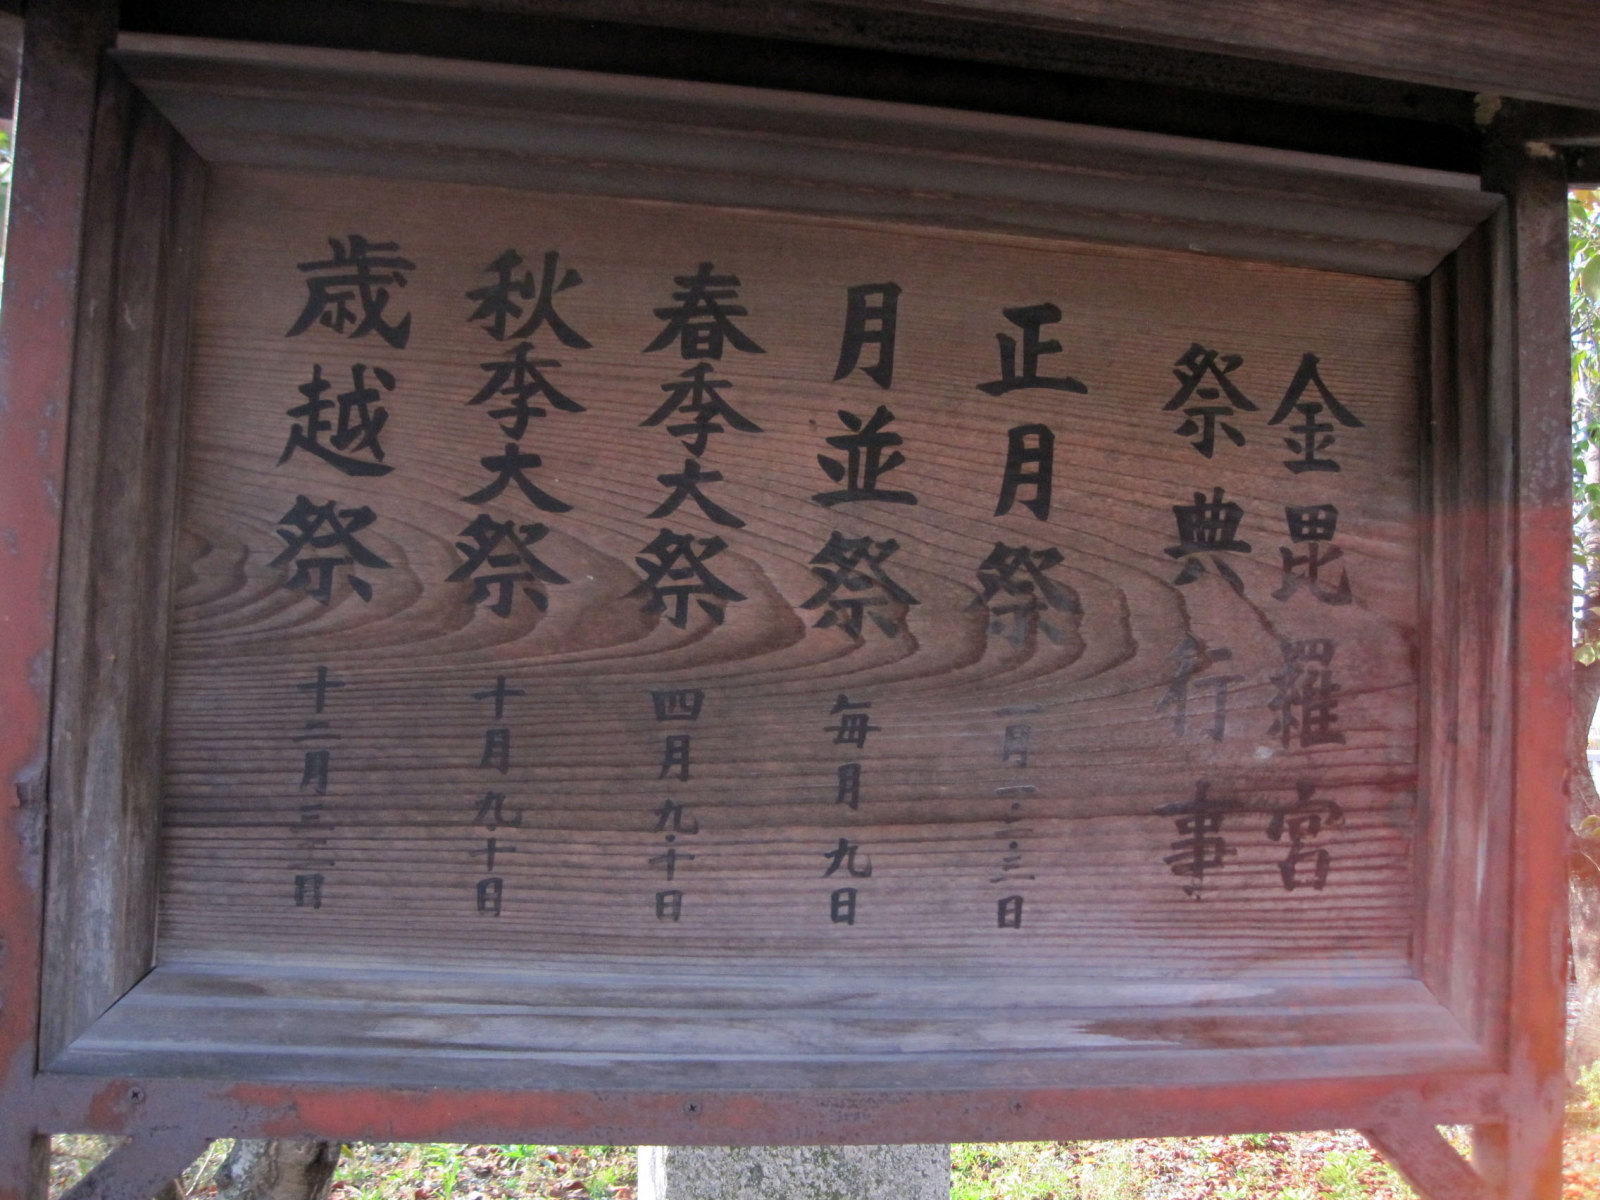 金毘羅宮
祭典行事
正月祭 一月一・二・三日
月並祭 毎月九日
春季大祭 四月九・十日
秋季大祭 十月九・十日
歳越祭 十二月三十一日